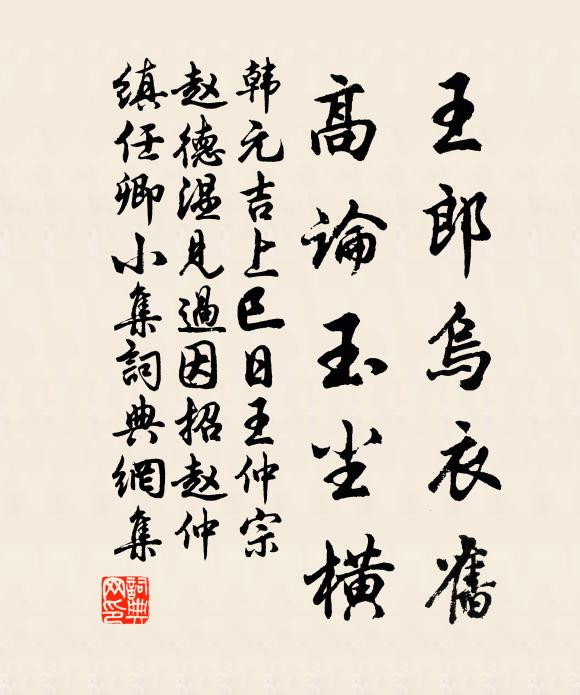 王郎烏衣舊
高論玉尘橫
韩元吉上巳日王仲宗
赵德温見過因招赵仲
缜任卿小集詞典網集
詞典网印